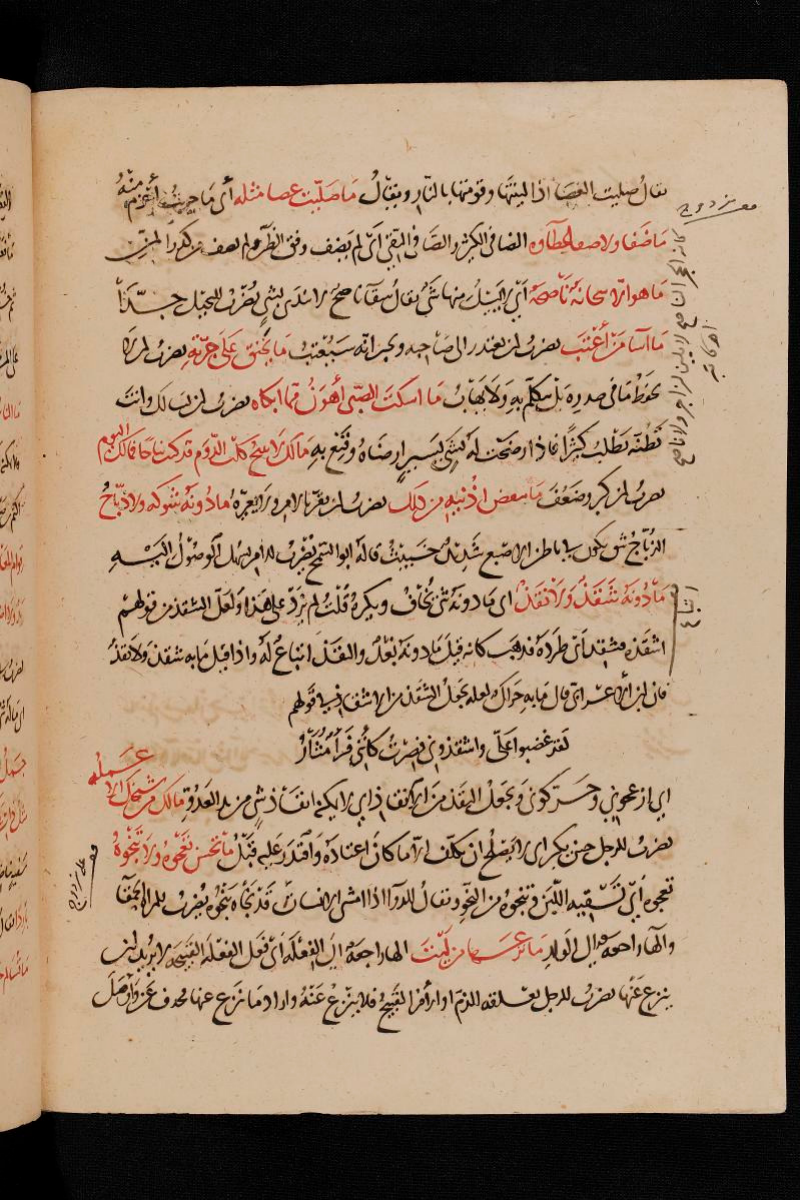 يقال صليت العصا اذا لينتها وقومتها بالنار ويقال ما صليت عصا مثله أي ما جربت أحزم منه
ما ضفا ولا صفا عطاؤه الضافي الكثير والصافي النقي أي لم يضف وفق الظن ولم يصف من كدر المن
ما هو الا سحابة ناصحة أي لا يسيل منها شئ يقال سقاء ناصح لا يندى بشئ يضرب للبخيل جدّاً
ما أسا من أعتب يضرب لمن يعتذر الى صاحبه ويخبر انه سيعتب ما يخنق على جرته يضرب لمن لا
يحفظ ما في صدره بل يتكلم به ولا يهاب ما اسكت الصبي أهون مما ابكاه يضرب لمن يسالك وانت
تظنه يطلب كثيرا فاذا رضخت له بشئ يسير ارضاه وقنع به مالك لا تنبح يا كلب الدوم قد كنت نباحا فمالك اليوم
يضرب لمن كبر وضعف ما ينفض اذنيه من ذلك يضرب لمن يقر بالامر ولا يغيره ما دونه شوكة ولا ذباح
الذباح شق يكون في باطن الاصبع شديد خبيث قاله ابو السمح يضرب للامر يسهل الوصول اليه
ما دونه شقذ ولا نقذ اي ما دونه شئ يخاف ويكره قلت لم يزد على هذا ولعل الشقذ من قولهم
اشقذه فشقذ أي طرده فذهب كانه قيل ما دونه بعد والنقذ اتباع له واذا قيل ما به شقذ ولا نقذ
فان ابن الأعرابي قال ما به حراك ولعله يجعل الشقذ من الاشقاذ في قولهم
لقد غضبوا علي واشقذوني فصرت كأنني فرأ متار
اي ازعجوني وحركوني ويجعل النقذ من الانقاذ اي لا يمكنه انقاذ شئ من يد العدو مالك من شيخك الا عمله
يضرب للرجل حين يكبر اي لا يصلح ان يكلف الا ما كان اعتاده واقتدر عليه قبل ما تحسن تعجوه ولا تنجوه
تعجوه أي تسقيه اللبن وتنجوه من النجو ويقال للدواء اذا امشى الانسان قد نجاه ينجوه يضرب للمراة الحمقا
والهاء راجعة الى الولد ما نزعها من ليت الهاء راجعة الى الفعلة أي فعل الفعلة القبيحة لا يريد ان
ينزع عنها يضرب للرجل يعلقه الذم او الامر القبيح فلا ينزع عنه واراد ما نزع عنها فحذف عن واوصل